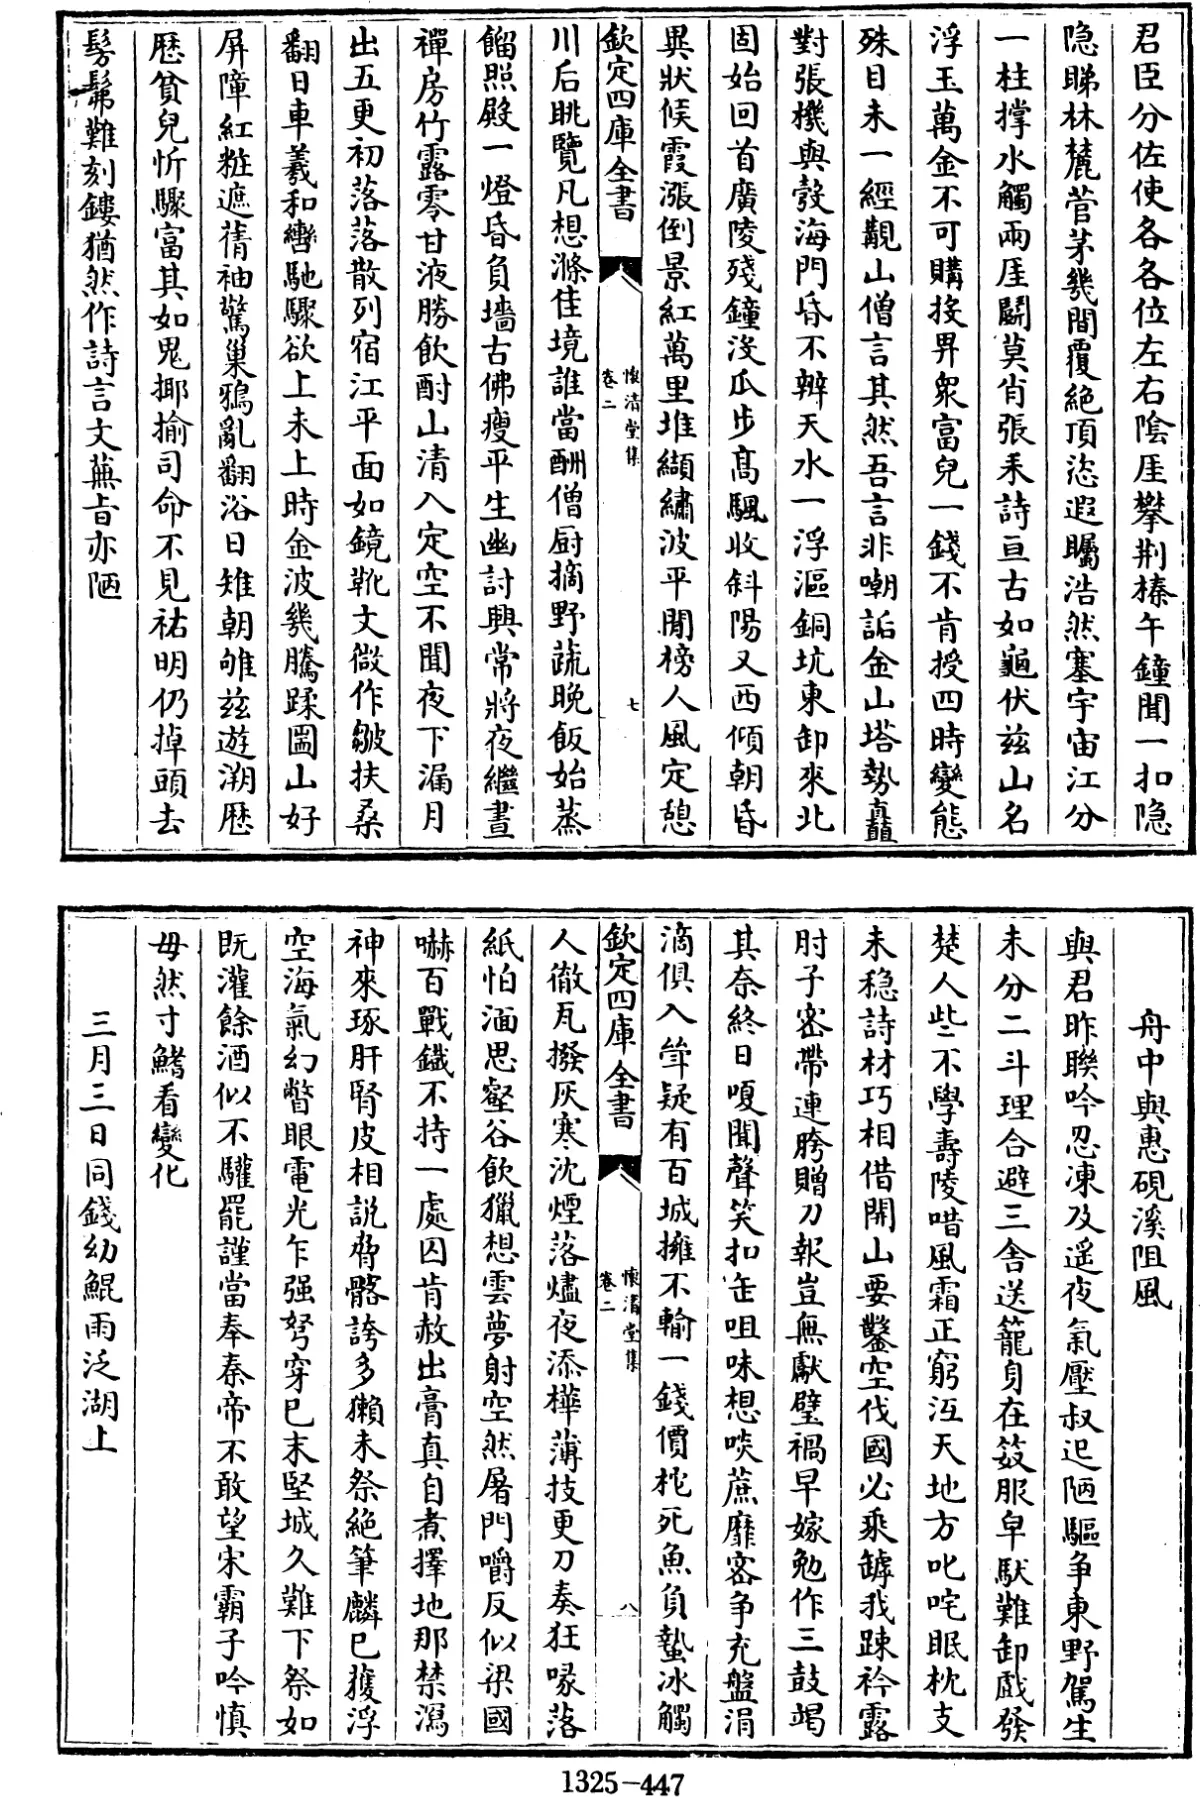 君臣分佐使各各位左右陰厓攀荆榛午鐘聞一扣隐
隐睇林麓菅茅幾間覆絶頂恣遐矚浩然塞宇宙江分
一柱撑水觸兩厓鬭莫肖張耒詩亘古如龜伏兹山名
浮玉萬金不可購挍畀衆富兒一錢不肯授四時變態
殊目未一經觀山僧言其然吾言非嘲詬金山塔勢矗
對張機與彀海門昏不辨天水一浮漚銅坑東卸來北
固始回首廣陵殘鐘没瓜步髙颿收斜陽又西傾朝昏
異狀候霞漲倒景紅萬里堆纈繡波平閒榜人風定憩
欽定四庫全書
懷清堂集
卷二
七
川后眺覽凡想滌佳境誰當酬僧厨摘野蔬晩飯始蒸
餾照殿一燈昏負墻古佛瘦平生幽討興常將夜繼晝
禪房竹露零甘液勝飲酎山清入定空不聞夜下漏月
出五更初落落散列宿江平面如鏡靴文倣作皺扶桑
翻日車羲和轡馳驟欲上未上時金波幾騰蹂圌山好
屏障紅粧遮蒨袖驚巢鴉亂翻浴日雉朝雊兹遊溯歴
歴貧兒忻驟富其如鬼揶揄司命不見祐明仍掉頭去
髣髴難刻鏤猶然作詩言文蕪旨亦陋
舟中與惠硯溪阻風
與君昨聨吟忍凍及遥夜氣壓叔迟陋驅争東野駕生
未分二斗理合避三舎送籠身在笯服皁馱難卸戯發
楚人些不學壽陵唶風霜正窮沍天地方叱咤眠枕支
未穏詩材巧相借開山要鑿空伐國必乘罅我踈衿露
肘子宻帶連胯贈刀報豈無獻璧禍早嫁勉作三鼓竭
其奈終日嗄聞聲笑扣缶咀味想啖蔗靡宻争充盤涓
滴俱入榨疑有百城擁不輸一錢價柁死魚負蟄冰觸
欽定四庫全書
懷清堂集
卷二
八
人徹瓦撥灰寒沈煙落燼夜添樺薄技更刀奏狂喙落
紙怕湎思壑谷飲獵想雲夢射空然屠門嚼反似梁國
嚇百戰鐡不持一處囚肯赦出膏真自煮擇地那禁瀉
神來琢肝腎皮相説脊髂誇多獺未祭絶筆麟已獲浮
空海氣幻瞥眼電光乍强弩穿已末堅城久難下祭如
既灌餘酒似不驩罷謹當奉秦帝不敢望宋霸子吟慎
毋然寸鰭看變化
三月三日同錢幼鯤雨泛湖上
1325-447